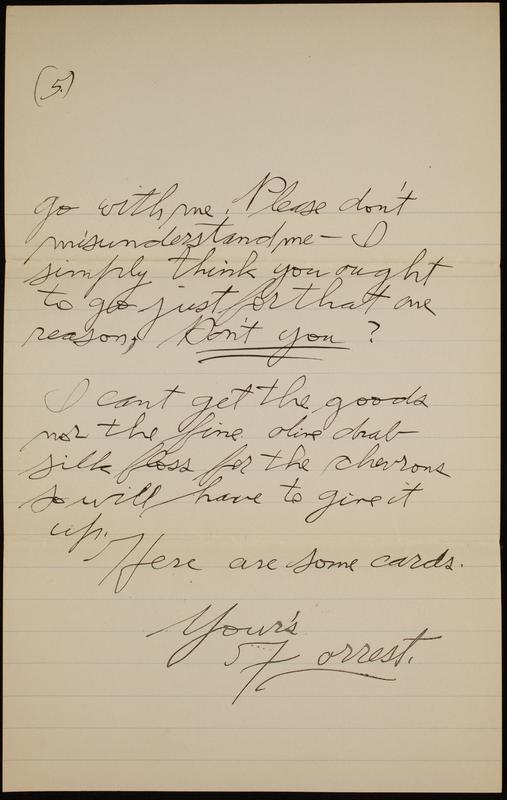 (5.)
go with me. Please don't
misunderstand me - I
simply think you ought
to go just for that one
reason, Don't you ?
I cant get the goods
nor the fine olive drab
silk floss for the chevrons
so will have to give it
up.
Here are some cards.
Your's
Forrest.